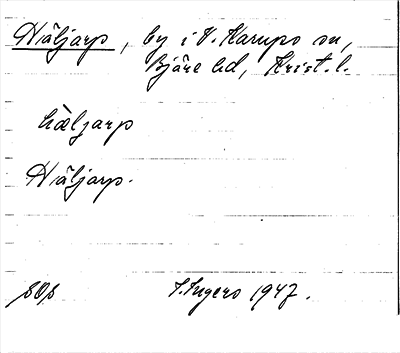 Häljarp, by i V. Karups sn,
Bjäre hd, Krist. l.
hæljarp
Häljarp.
SOf
I. Ingers 1947.